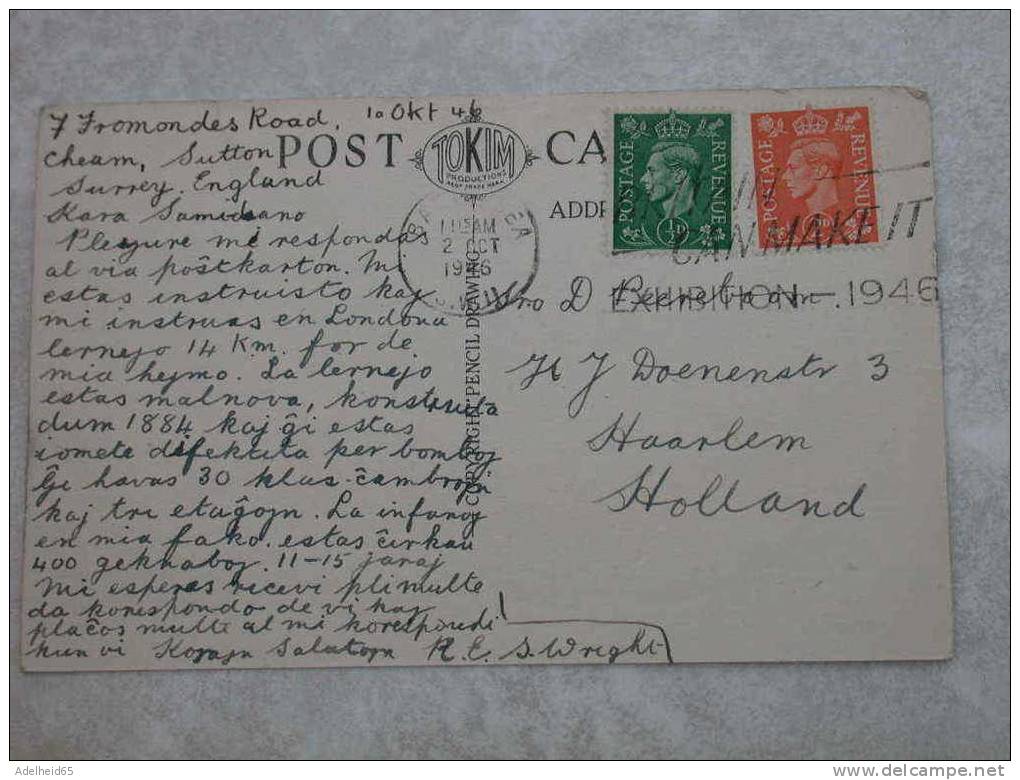 7 Fromondes Road, 10 Okt 46
Cheam, Sutton
Surrey. England
Kara Samideano
Plezure mi respondas
al via poŝtkarton. Mi
estas instruisto kaj
mi instruas en Londona
lernejo 14 Km. for de
mia hejmo. La lernejo
estas malnova, konstruita
dum 1884 kaj ĝi estas
iomete difekuta per bomboj
Ĝi havas 30 klas-ĉambrojn
kaj tri etaĝojn. La infanoj
en mia fako. estas ĉirkau
400 geknaboj. 11-15 jaraj
Mi esperas ricevi plimulte
da korespondo de vi kaj
plaĉos multe al mi korespondi
kun vi Korajn Salutojn R. E. S. Wright
POST CA
TOKIM
PRODUCTIONS
ADDR
COPYRIGHT PENCIL DRAWING
POSTAGE REVENUE
½D
POSTAGE REVENUE
BA EA
11 15 AM
2 OCT
1946
S.W.11
CAN MAKE IT
EXHIBITION - 1946
Sro D
H J Doenenstr 3
Haarlem
Holland
Adelheid65
http://www.delcampe.net